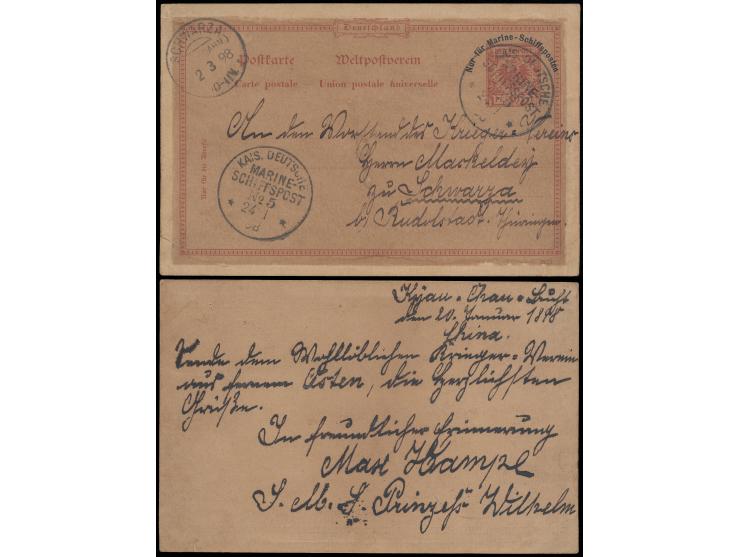 Deutschland
Postkarte Weltpostverein
Carte postale Union postale universelle
Nur für Marine-Schiffsposten
SCHWARZA
2 3 98
KAIS. DEUTSCHE
MARINE-
SCHIFFSPOST
No 5
24 1
98
An den Vorstand des Krieger-Vereins
Herrn Maskeldey
zu Schwarza
b/ Rudolstadt. Thüringen.
Kyau-Chau-Bucht
den 20. Januar 1898
China.
Sende dem Wohllöblichen Krieger-Verein
aus fernem Osten, die Herzlichsten
Grüße.
In freundlicher Erinnerung
Max Hampe
S. M. S. Prinzeß Wilhelm